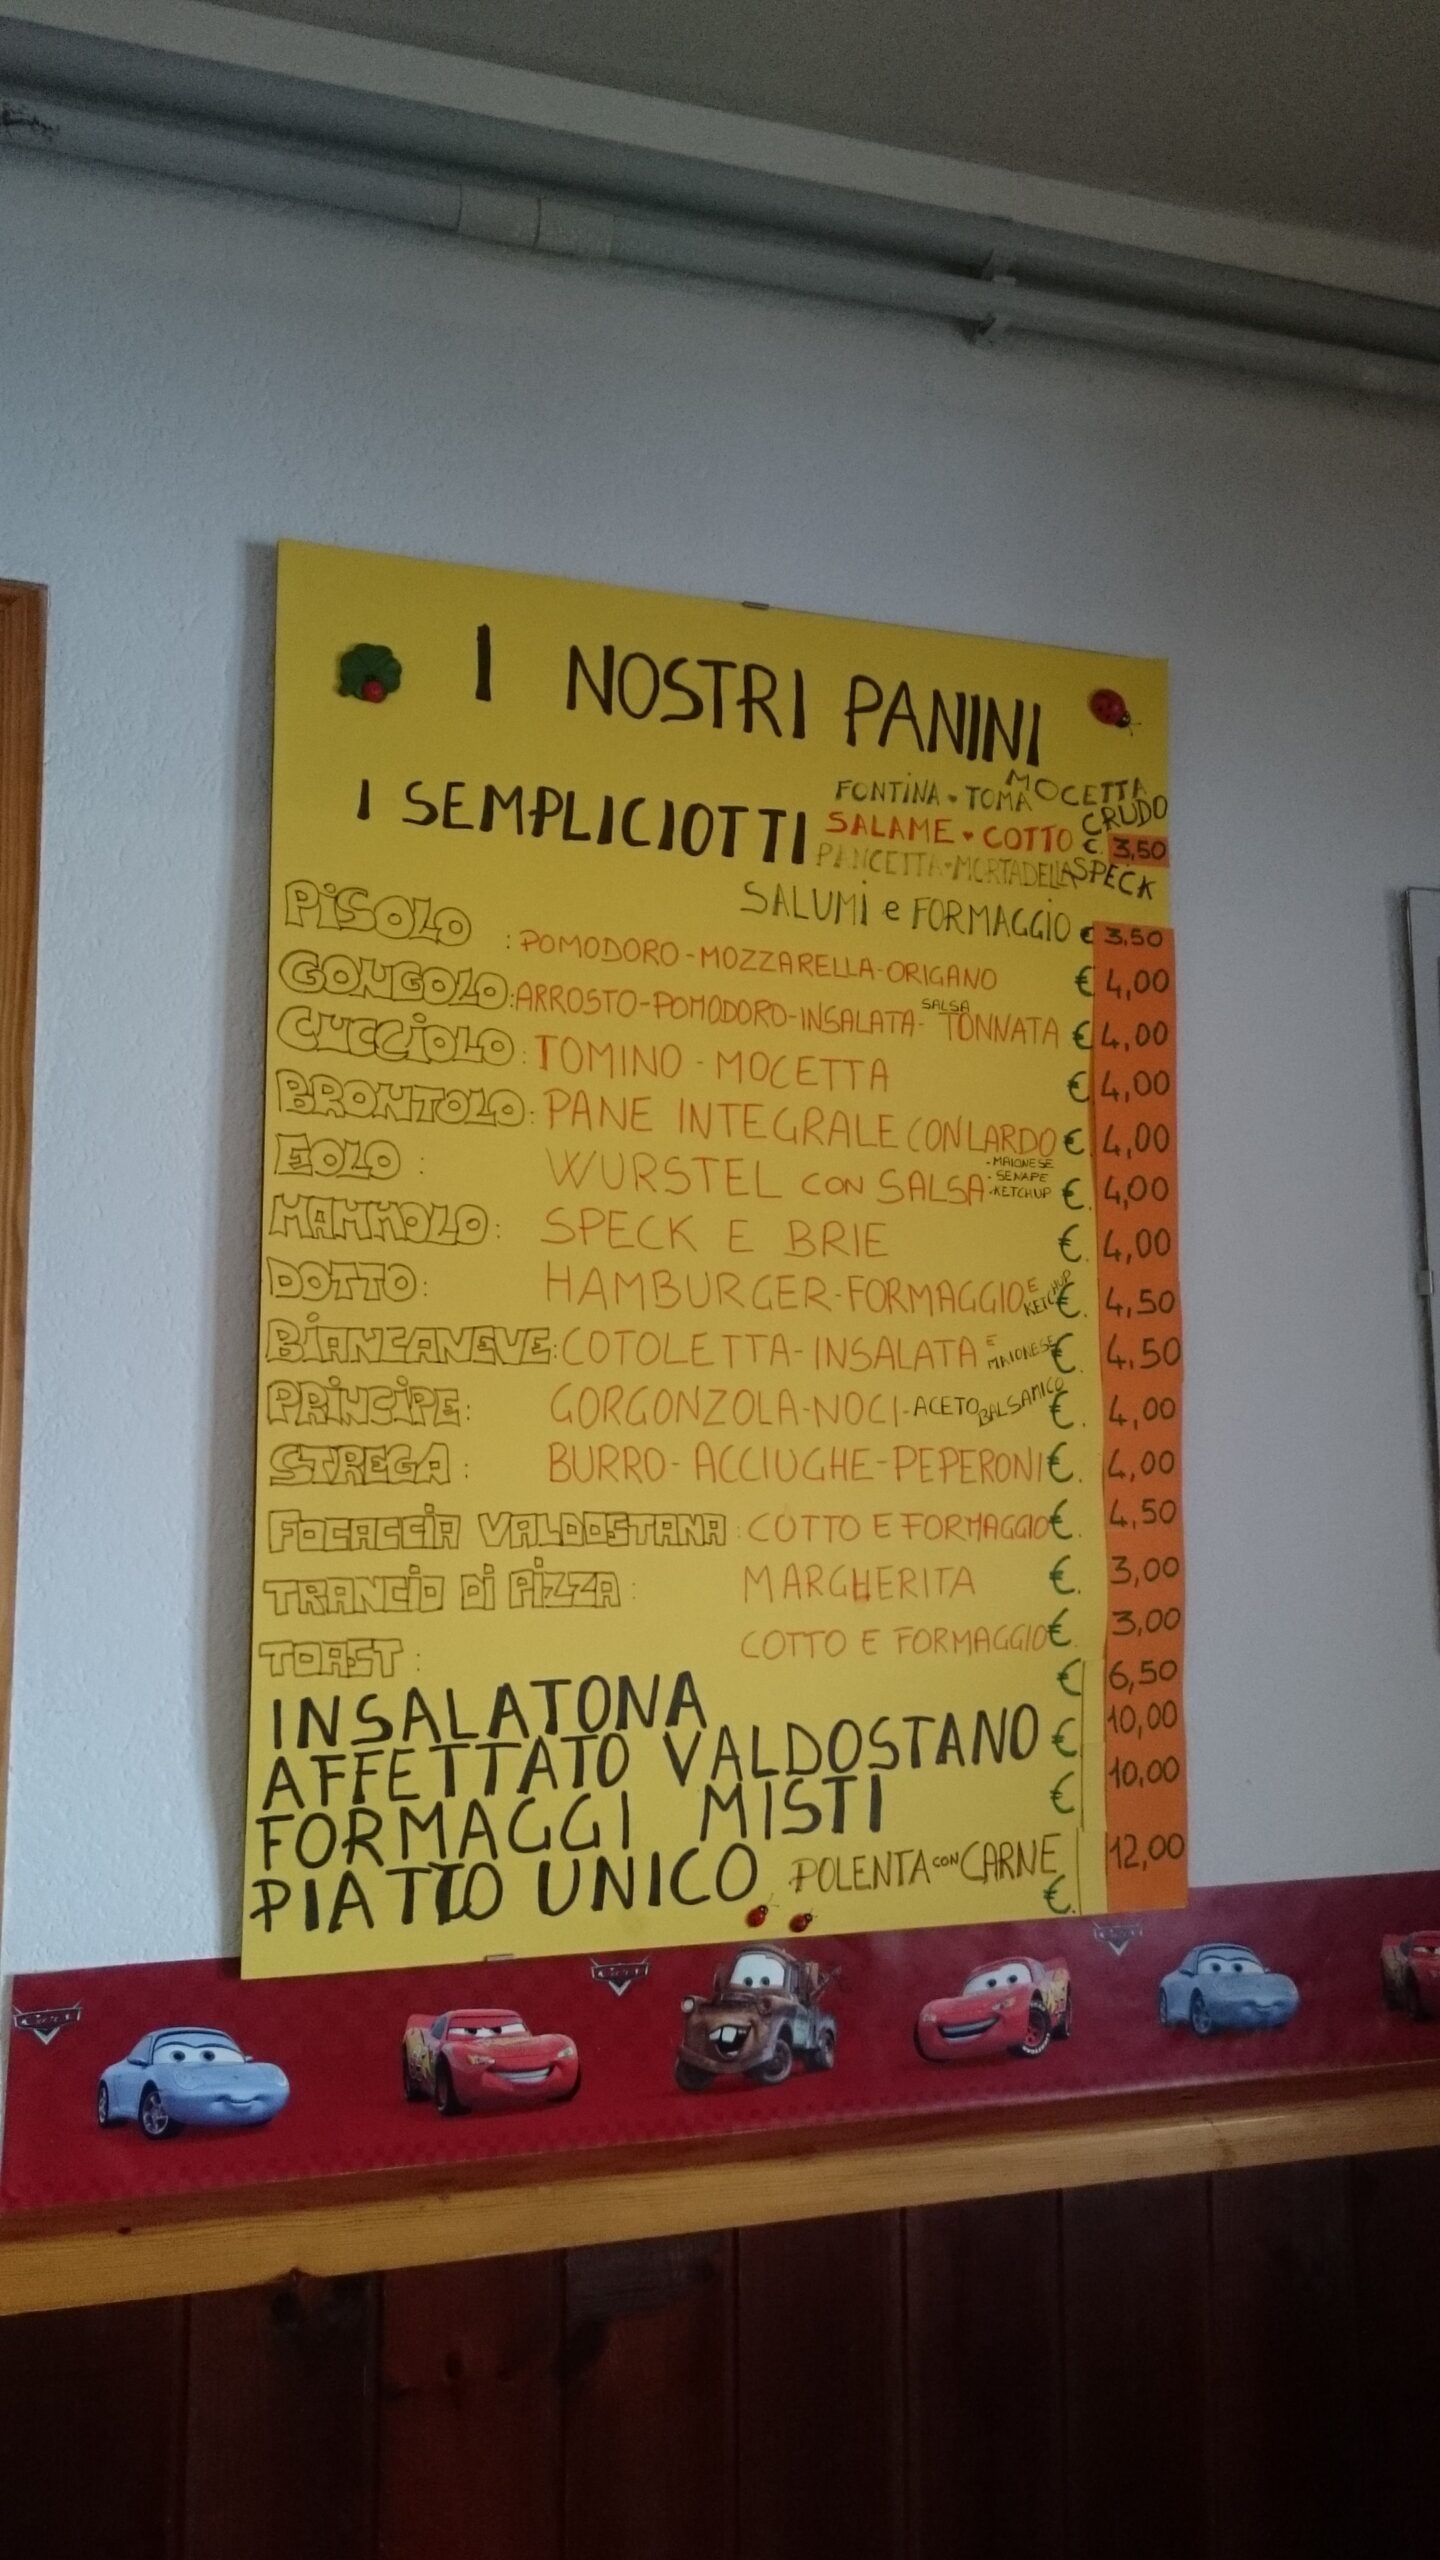 I NOSTRI PANINI
I SEMPLICIOTTI FONTINA · TOMA MOCETTA
SALAME · COTTO CRUDO €. 3,50
PANCETTA · MORTADELLA SPECK
SALUMI e FORMAGGIO € 3,50
PISOLO : POMODORO - MOZZARELLA - ORIGANO € 4,00
GONGOLO : ARROSTO - POMODORO - INSALATA - SALSA TONNATA € 4,00
CUCCIOLO : TOMINO - MOCETTA € 4,00
BRONTOLO : PANE INTEGRALE CON LARDO €. 4,00
EOLO : WURSTEL CON SALSA - MAIONESE - SENAPE - KETCHUP €. 4,00
MAMMOLO : SPECK E BRIE €. 4,00
DOTTO : HAMBURGER - FORMAGGIO E KETCHUP €. 4,50
BIANCANEVE : COTOLETTA - INSALATA E MAIONESE €. 4,50
PRINCIPE : GORGONZOLA - NOCI - ACETO BALSAMICO €. 4,00
STREGA : BURRO - ACCIUGHE - PEPERONI €. 4,00
FOCACCIA VALDOSTANA : COTTO E FORMAGGIO €. 4,50
TRANCIO DI PIZZA : MARGHERITA €. 3,00
TOAST : COTTO E FORMAGGIO €. 3,00
INSALATONA € 6,50
AFFETTATO VALDOSTANO € 10,00
FORMAGGI MISTI € 10,00
PIATTO UNICO POLENTA CON CARNE €. 12,00